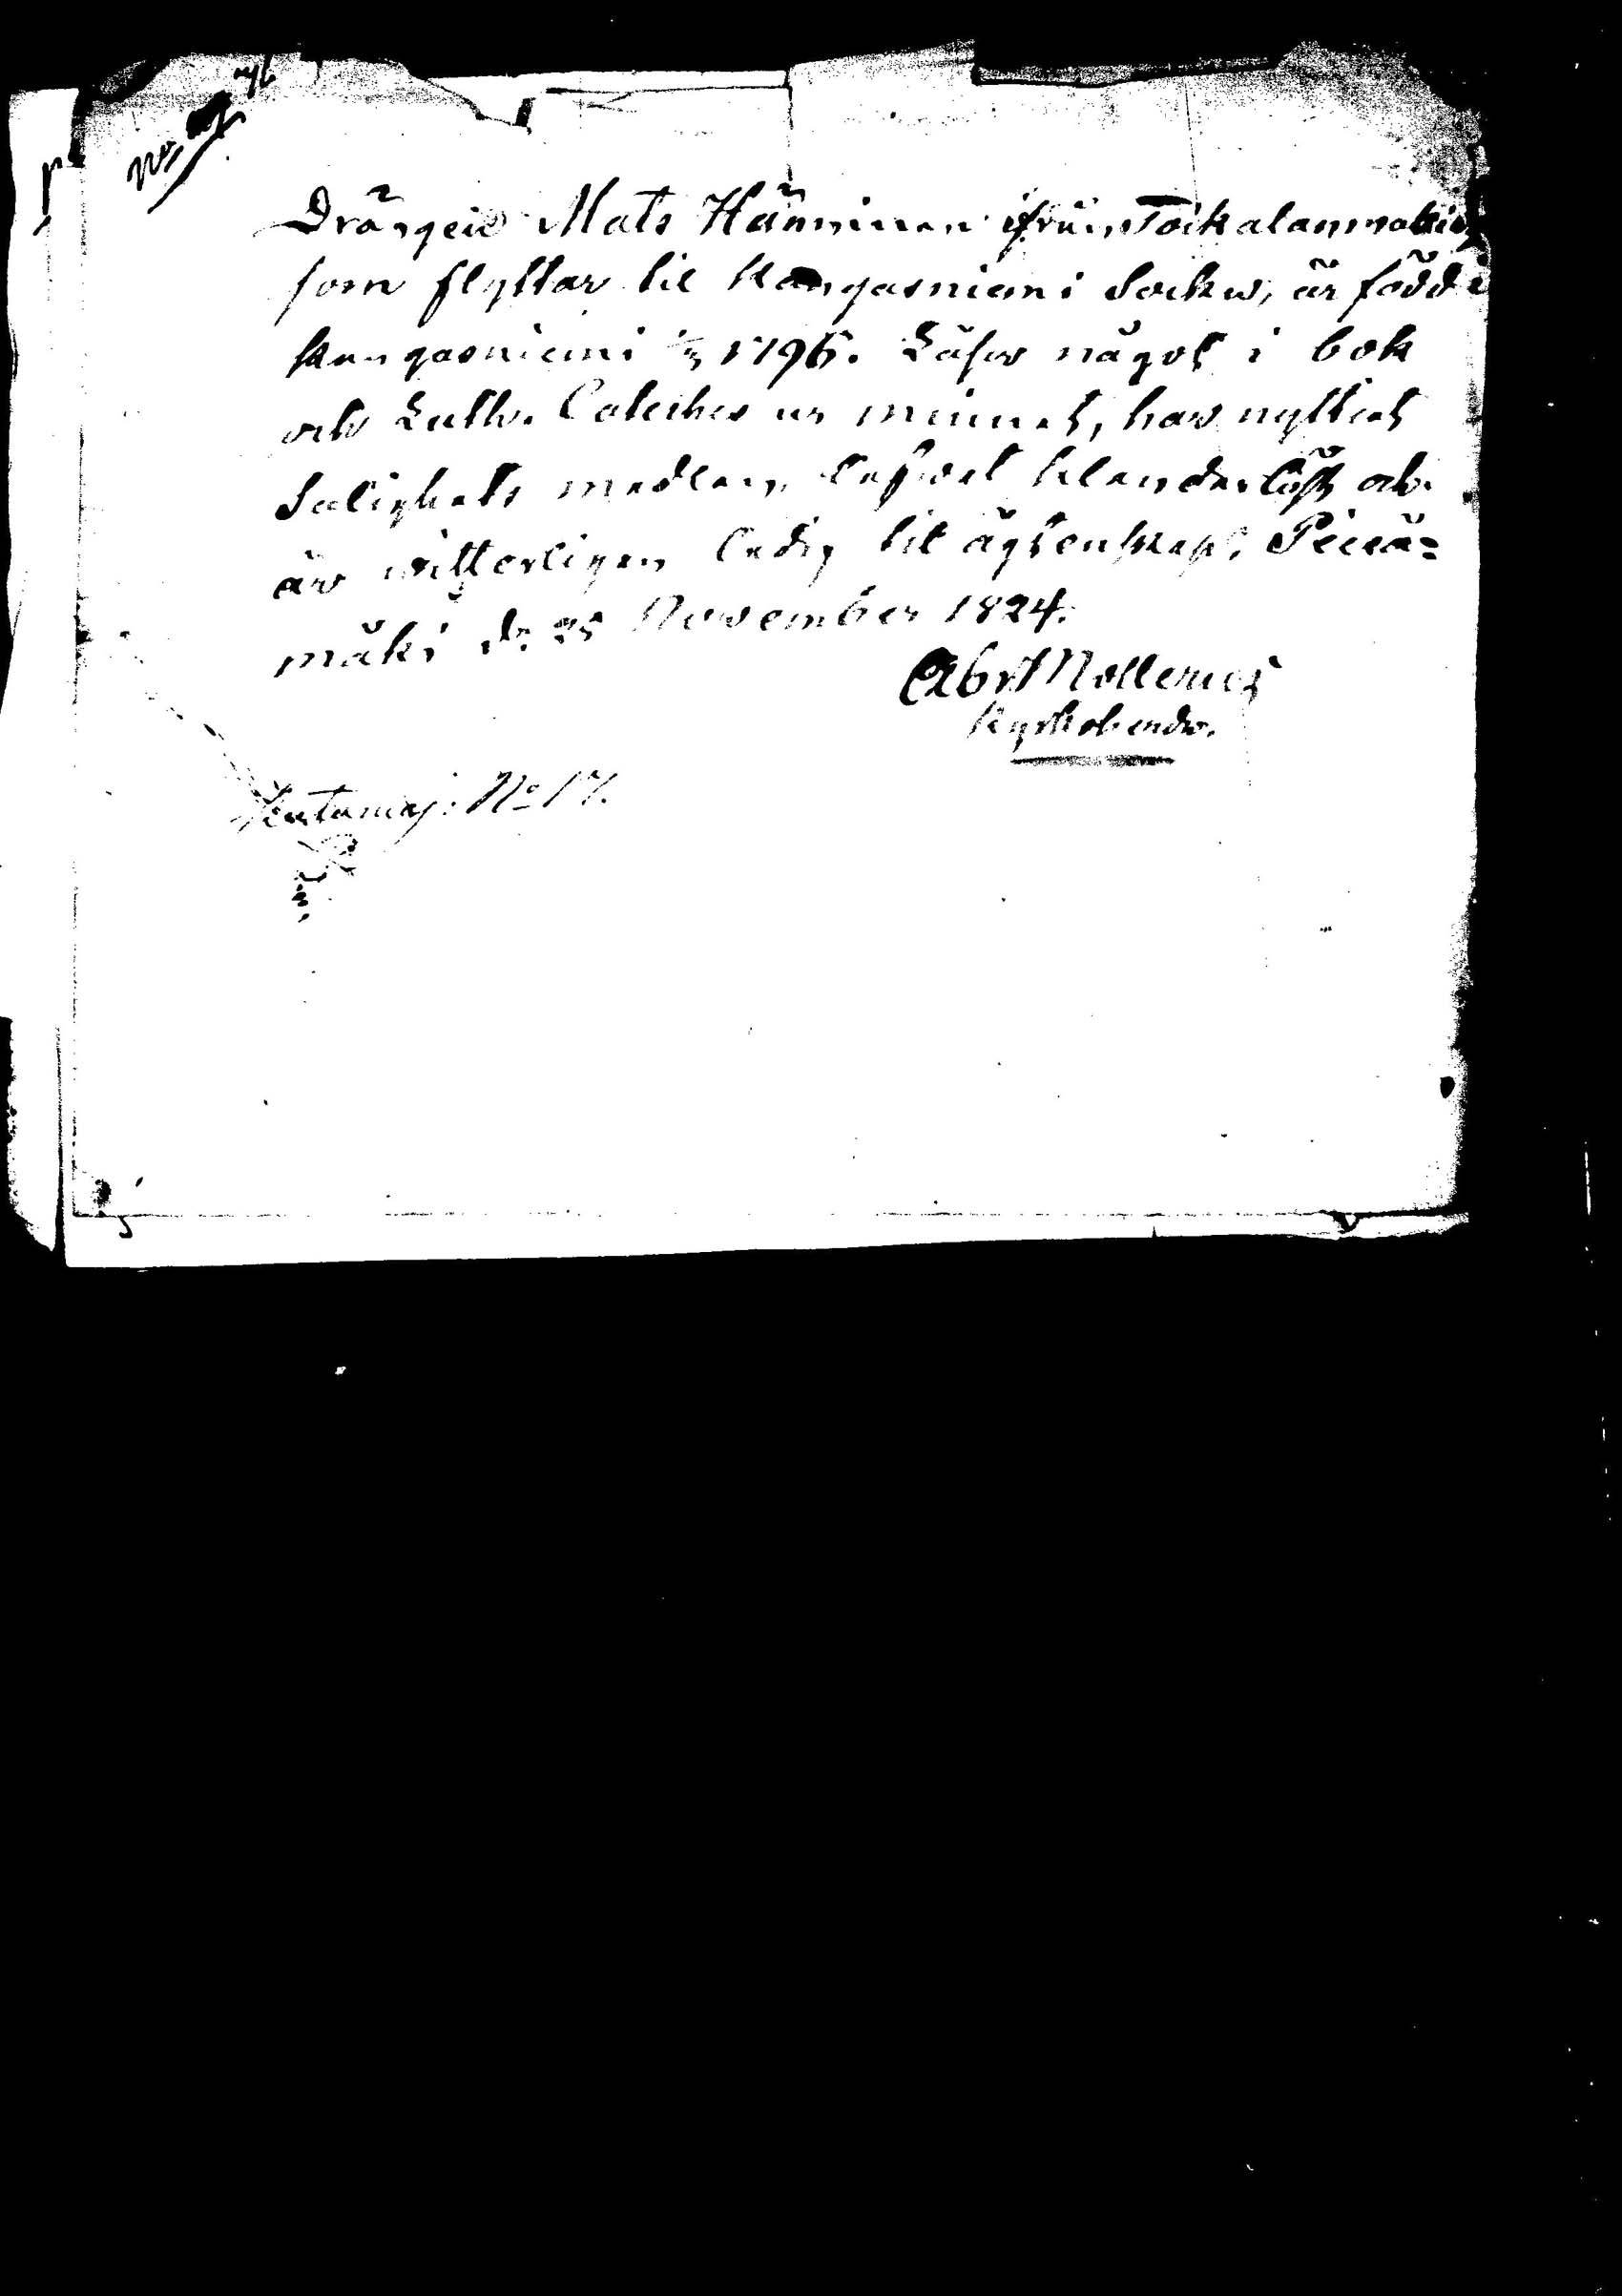 Drängen Mats Hänninen ifrån Toikalanmäki
som flyttar til Kangasniemi Sockn, är född i
Kangasniemi 1796. Läser något i bok
och Luth. Cateches ur minnet, har nyttiat
Salighets medlen, lefwat klanderlöst och
är witterligen ledig til ägtenskap, Piexä=
mäki d. 25 November 1824.
Abr Molleruus
Kyrkoherde.
No 17.